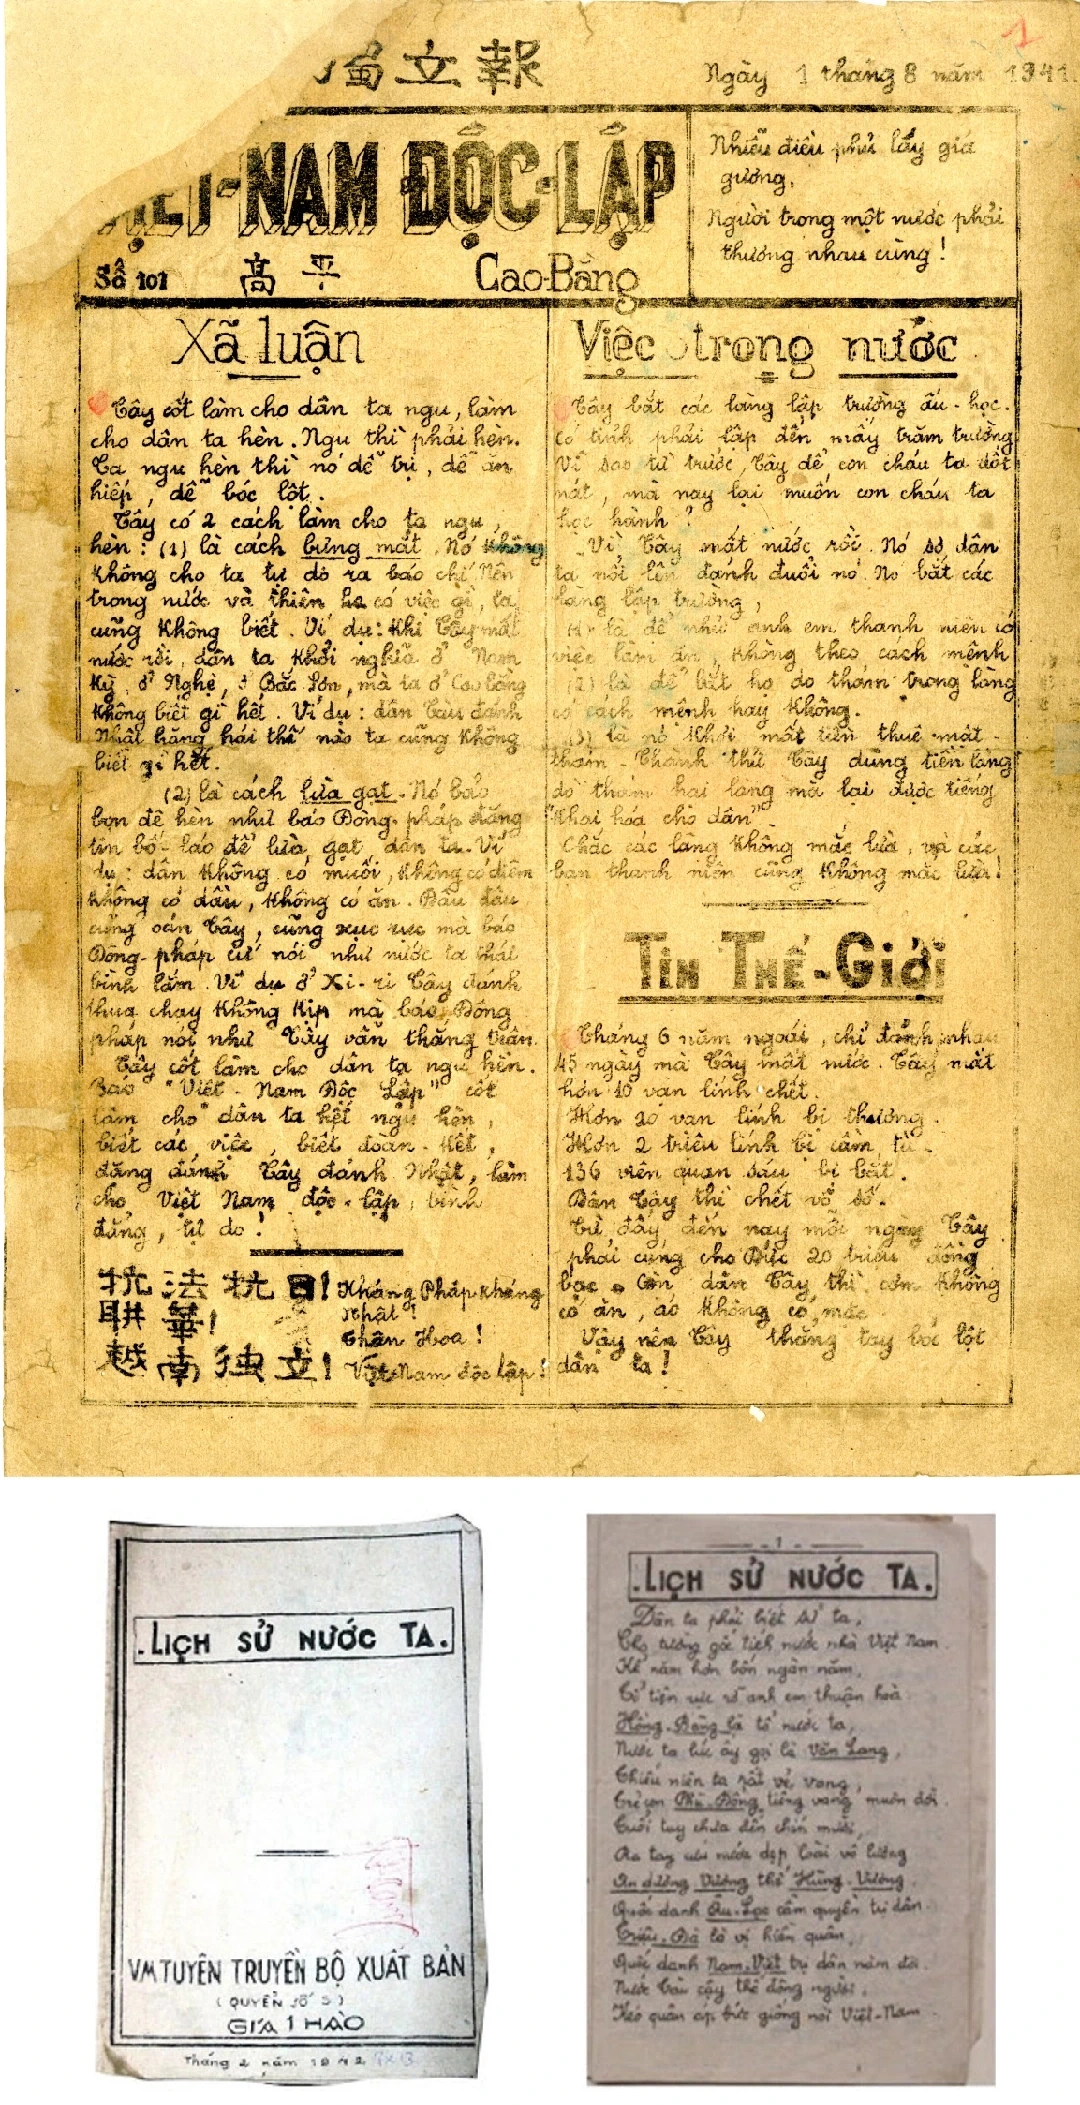 獨立報
Ngày 1 tháng 8 năm 1941.
1
VIỆT-NAM ĐỘC-LẬP
Số 101 高平 Cao-Bằng
Nhiễu điều phủ lấy giá
gương,
Người trong một nước phải
thương nhau cùng!
Xã luận
Tây cốt làm cho dân ta ngu, làm
cho dân ta hèn. Ngu thì phải hèn.
Ta ngu hèn thì nó dễ trị, dễ ăn
hiếp, dễ bóc lột.
Tây có 2 cách làm cho ta ngu,
hèn: (1) là cách bưng mắt. Nó không
không cho ta tự do ra báo chí. Nên
trong nước và thiên hạ có việc gì, ta
cũng không biết. Ví dụ: khi Tây mất
nước rồi, dân ta khởi nghĩa ở Nam
Kỳ, ở Nghệ, ở Bắc Sơn, mà ta ở Cao bằng
không biết gì hết. Ví dụ: dân Tàu đánh
Nhật hăng hái thế nào ta cũng không
biết gì hết.
(2) là cách lừa gạt. Nó bảo
bọn đê hèn như báo Đông-pháp đăng
tin bố-láo để lừa gạt dân ta. Ví
dụ: dân không có muối, không có diêm
không có dầu, không có ăn. Đâu đâu
cũng oán Tây, cũng xục xục mà báo
Đông-pháp cứ nói như nước ta thái
bình lắm. Ví dụ ở Xi-ri Tây đánh
thua chạy không kịp mà báo Đông
pháp nói như Tây vẫn thắng trận.
Tây cốt làm cho dân ta ngu hèn.
Báo "Việt-Nam Độc Lập" cốt
làm cho dân ta hết ngu hèn,
biết các việc, biết đoàn-kết,
đặng đánh Tây đánh Nhật, làm
cho Việt Nam độc-lập, bình
đẳng, tự do!
抗法抗日! Kháng Pháp kháng
Nhật!
聯華! Thân Hoa!
越南独立! Việt Nam độc lập!
Việc trong nước
Tây bắt các làng lập trường ấu-học.
Có tỉnh phải lập đến mấy trăm trường
Vì sao từ trước, Tây để con cháu ta dốt
nát, mà nay lại muốn con cháu ta
học hành?
Vì, Tây mất nước rồi. Nó sợ dân
ta nổi lên đánh đuổi nó. Nó bắt các
làng lập trường,
(1) là để nhử anh em thanh niên có
việc làm ăn, không theo cách mệnh
(2) là để bắt họ do thám trong làng
có cách mệnh hay không.
(3) là nó khỏi mất tiền thuê mật-
thám. Thành thử Tây dùng tiền làng
do thám hại làng mà lại được tiếng
"khai hóa cho dân".
Chắc các làng không mắc lừa, và các
bạn thanh niên cũng không mắc lừa!
TIN THẾ-GIỚI
Tháng 6 năm ngoái, chỉ đánh nhau
45 ngày mà Tây mất nước. Tây mất
hơn 10 vạn lính chết.
Hơn 20 vạn lính bị thương.
Hơn 2 triệu lính bị cầm tù.
136 viên quan sáu bị bắt.
Dân Tây thì chết vô số.
Từ đấy đến nay mỗi ngày Tây
phải cung cho Đức 20 triệu đồng
bạc. Còn dân Tây thì cơm không
có ăn, áo không có mặc.
Vậy nên Tây thẳng tay bóc lột
dân ta!
.LỊCH SỬ NƯỚC TA.
VM TUYÊN TRUYỀN BỘ XUẤT BẢN
(QUYỂN SỐ 3)
GIÁ 1 HÀO
Tháng 2 năm 1942
- 1 -
.LỊCH SỬ NƯỚC TA.
Dân ta phải biết sử ta,
Cho tường gốc tích nước nhà Việt Nam.
Kể năm hơn bốn ngàn năm,
Tổ tiên rực rỡ anh em thuận hoà.
Hồng-Bàng là tổ nước ta,
Nước ta lúc ấy gọi là Văn Lang,
Thiếu niên ta rất vẻ vang,
Trẻ con Phù-Đổng tiếng vang muôn đời.
Tuổi tuy chưa đến chín mười,
Ra tay cứu nước dẹp loài vô lương
An dương Vương thế Hùng-Vương,
Quốc danh Âu-Lạc cầm quyền trị dân.
Triệu-Đà là vị hiền quân,
Quốc danh Nam-Việt trị dân năm đời.
Nước Tàu cậy thế đông người,
Kéo quân áp bức giống nòi Việt-Nam